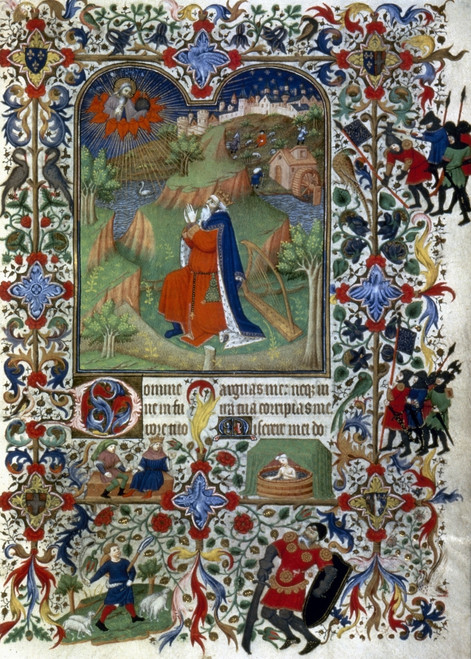 Domine
ne in fu
rore tuo
arguas me: neq; in i
ra tua corripias me
Miserere mei do